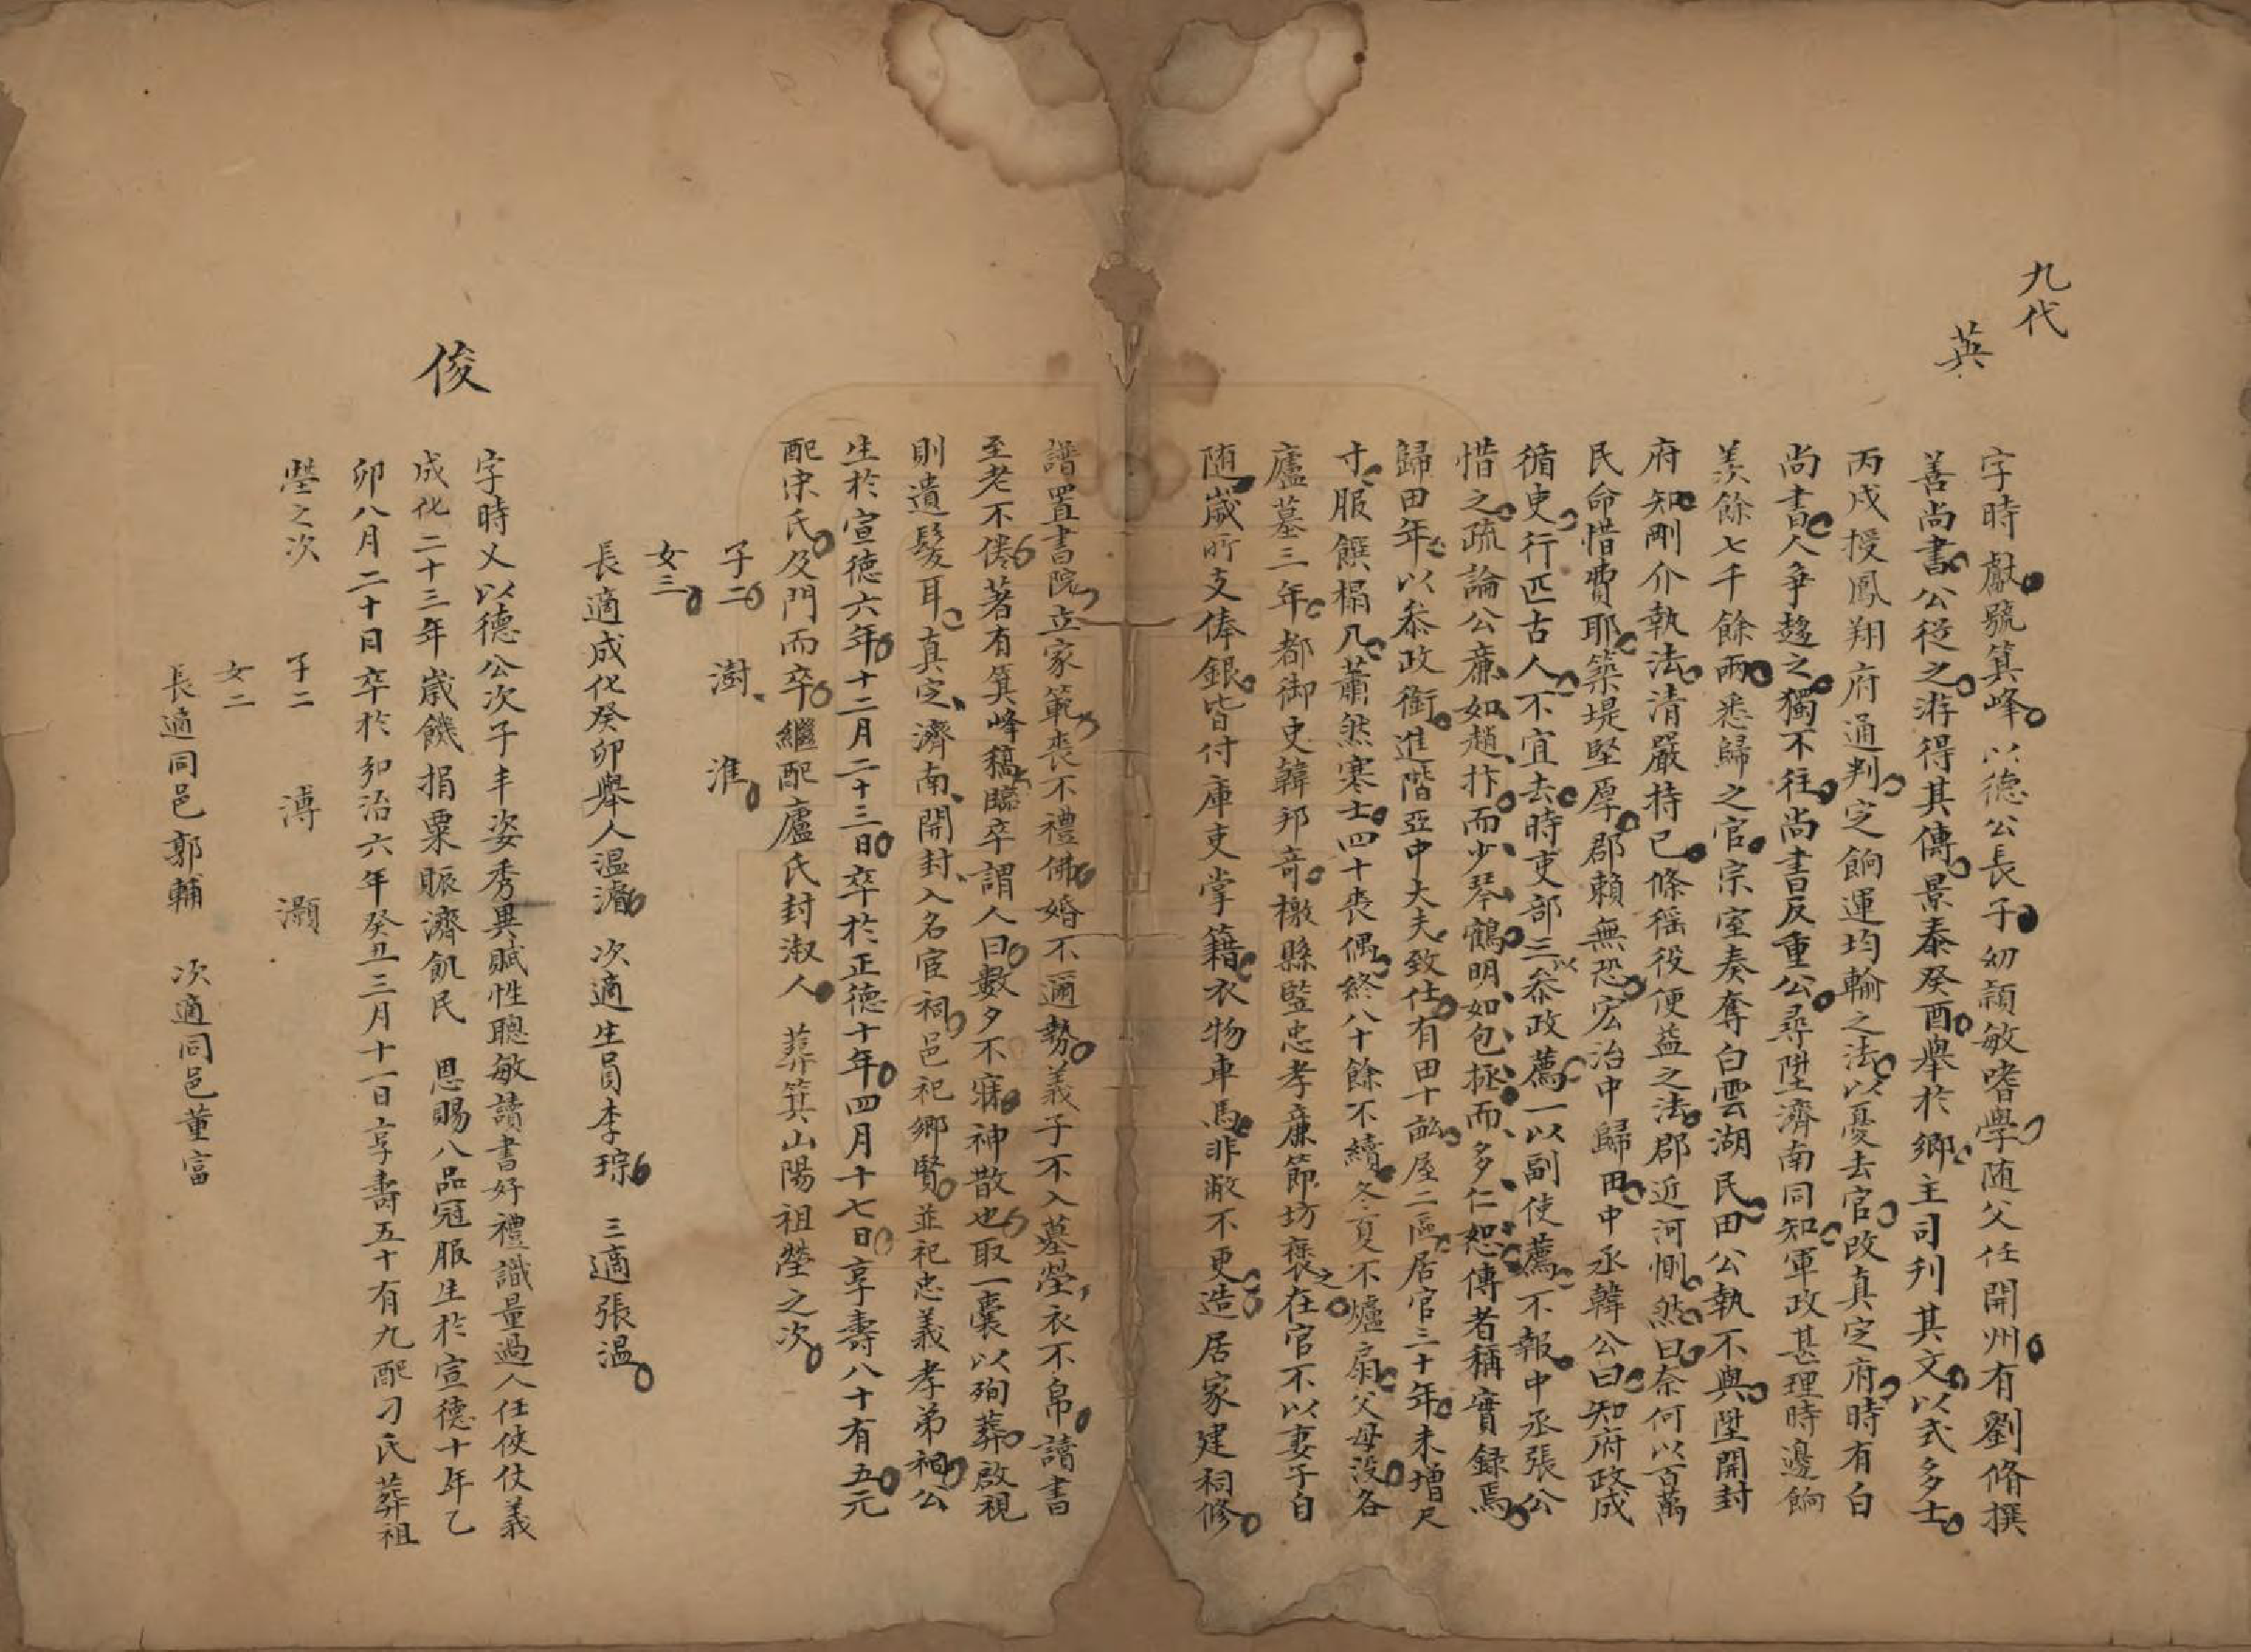 九代
英
字時獻號箕峰以德公長子幼頴敏嗜學随父任開州有劉脩撰
善尚書公從之游得其傳景泰癸酉舉於鄉主司刋其文以式多士
丙戍授鳳翔府通判定餉運均輸之法以憂去官改真定府時有白
尚書人爭趨之獨不徃尚書反重公尋陞濟南同知軍政甚理時邊餉
羡餘七千餘兩悉歸之官宗室奏奪白雲湖民田公執不與陞開封
府知剛介執法清嚴持已條徭役便益之法郡近河惻然曰奈何以百萬
民命惜費耶築堤堅厚郡賴無恐宏治中歸田中丞韓公曰知府政成
循吏行匹古人不宜去時吏部三以叅政薦一以副使薦不報中丞張公
惜之疏論公亷如趙抃而少琴鶴明如包拯而多仁恕傳者稱實録焉
歸田年以叅政銜進階亞中大夫致仕有田十畝屋二區居官三十年未增尺
寸服饌榻几蕭然寒士四十喪偶終八十餘不續冬夏不爐扇父母沒各
廬墓三年都御史韓邦竒檄縣竪忠孝亷節坊褒之在官不以妻子自
随歲所支俸銀皆付庫吏掌籍衣物車馬非敝不更造居家建祠修
譜置書院立家範喪不禮佛婚不邇勢義子不入墓塋衣不帛讀書
至老不倦著有箕峰稿臨卒謂人曰數夕不寐神散也取一囊以殉葬啟視
則遺髮耳真定濟南開封入名宦祠邑祀鄉賢並祀忠義孝弟祠公
生於宣德六年十二月二十三日卒於正德十年四月十七日享壽八十有五元
配宋氏及門而卒繼配廬氏封淑人 葬箕山陽祖塋之次
子二 澍 淮
女三
長適成化癸卯舉人温濬 次適生員李琮 三適張温
俊
字時乂以德公次子丰姿秀異賦性聰敏讀書好禮識量過人任俠仗義
成化二十三年歲饑捐粟賑濟飢民 恩賜八品冠服生於宣德十年乙
卯八月二十日卒於𢎞治六年癸丑三月十一日享壽五十有九配刁氏葬祖
塋之次 子二 溥 灝
女二
長適同邑郭輔 次適同邑董富